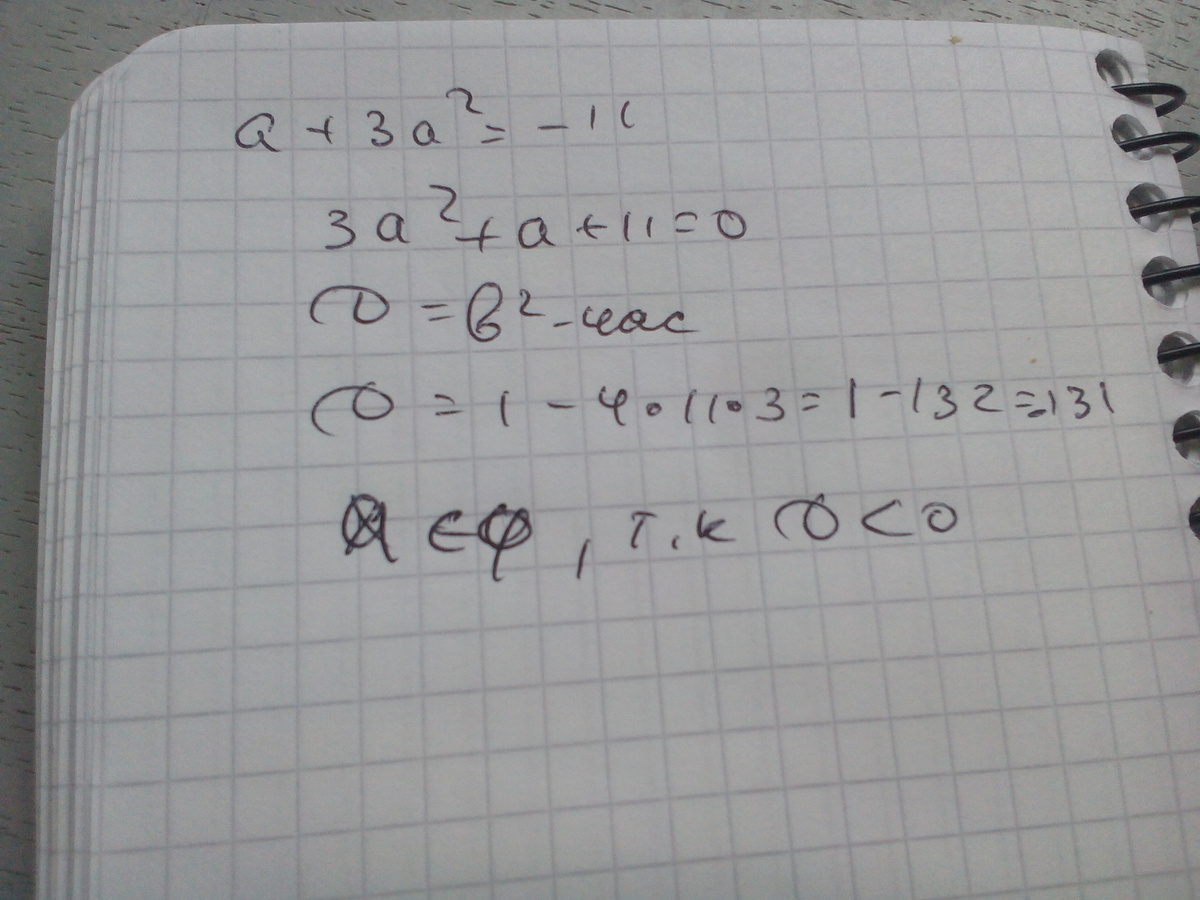 a + 3a² = -11
3a² + a + 11 = 0
D = в² - 4ac
D = 1 - 4•11•3 = 1 - 132 = -131
a ∈ φ, т.к D < 0